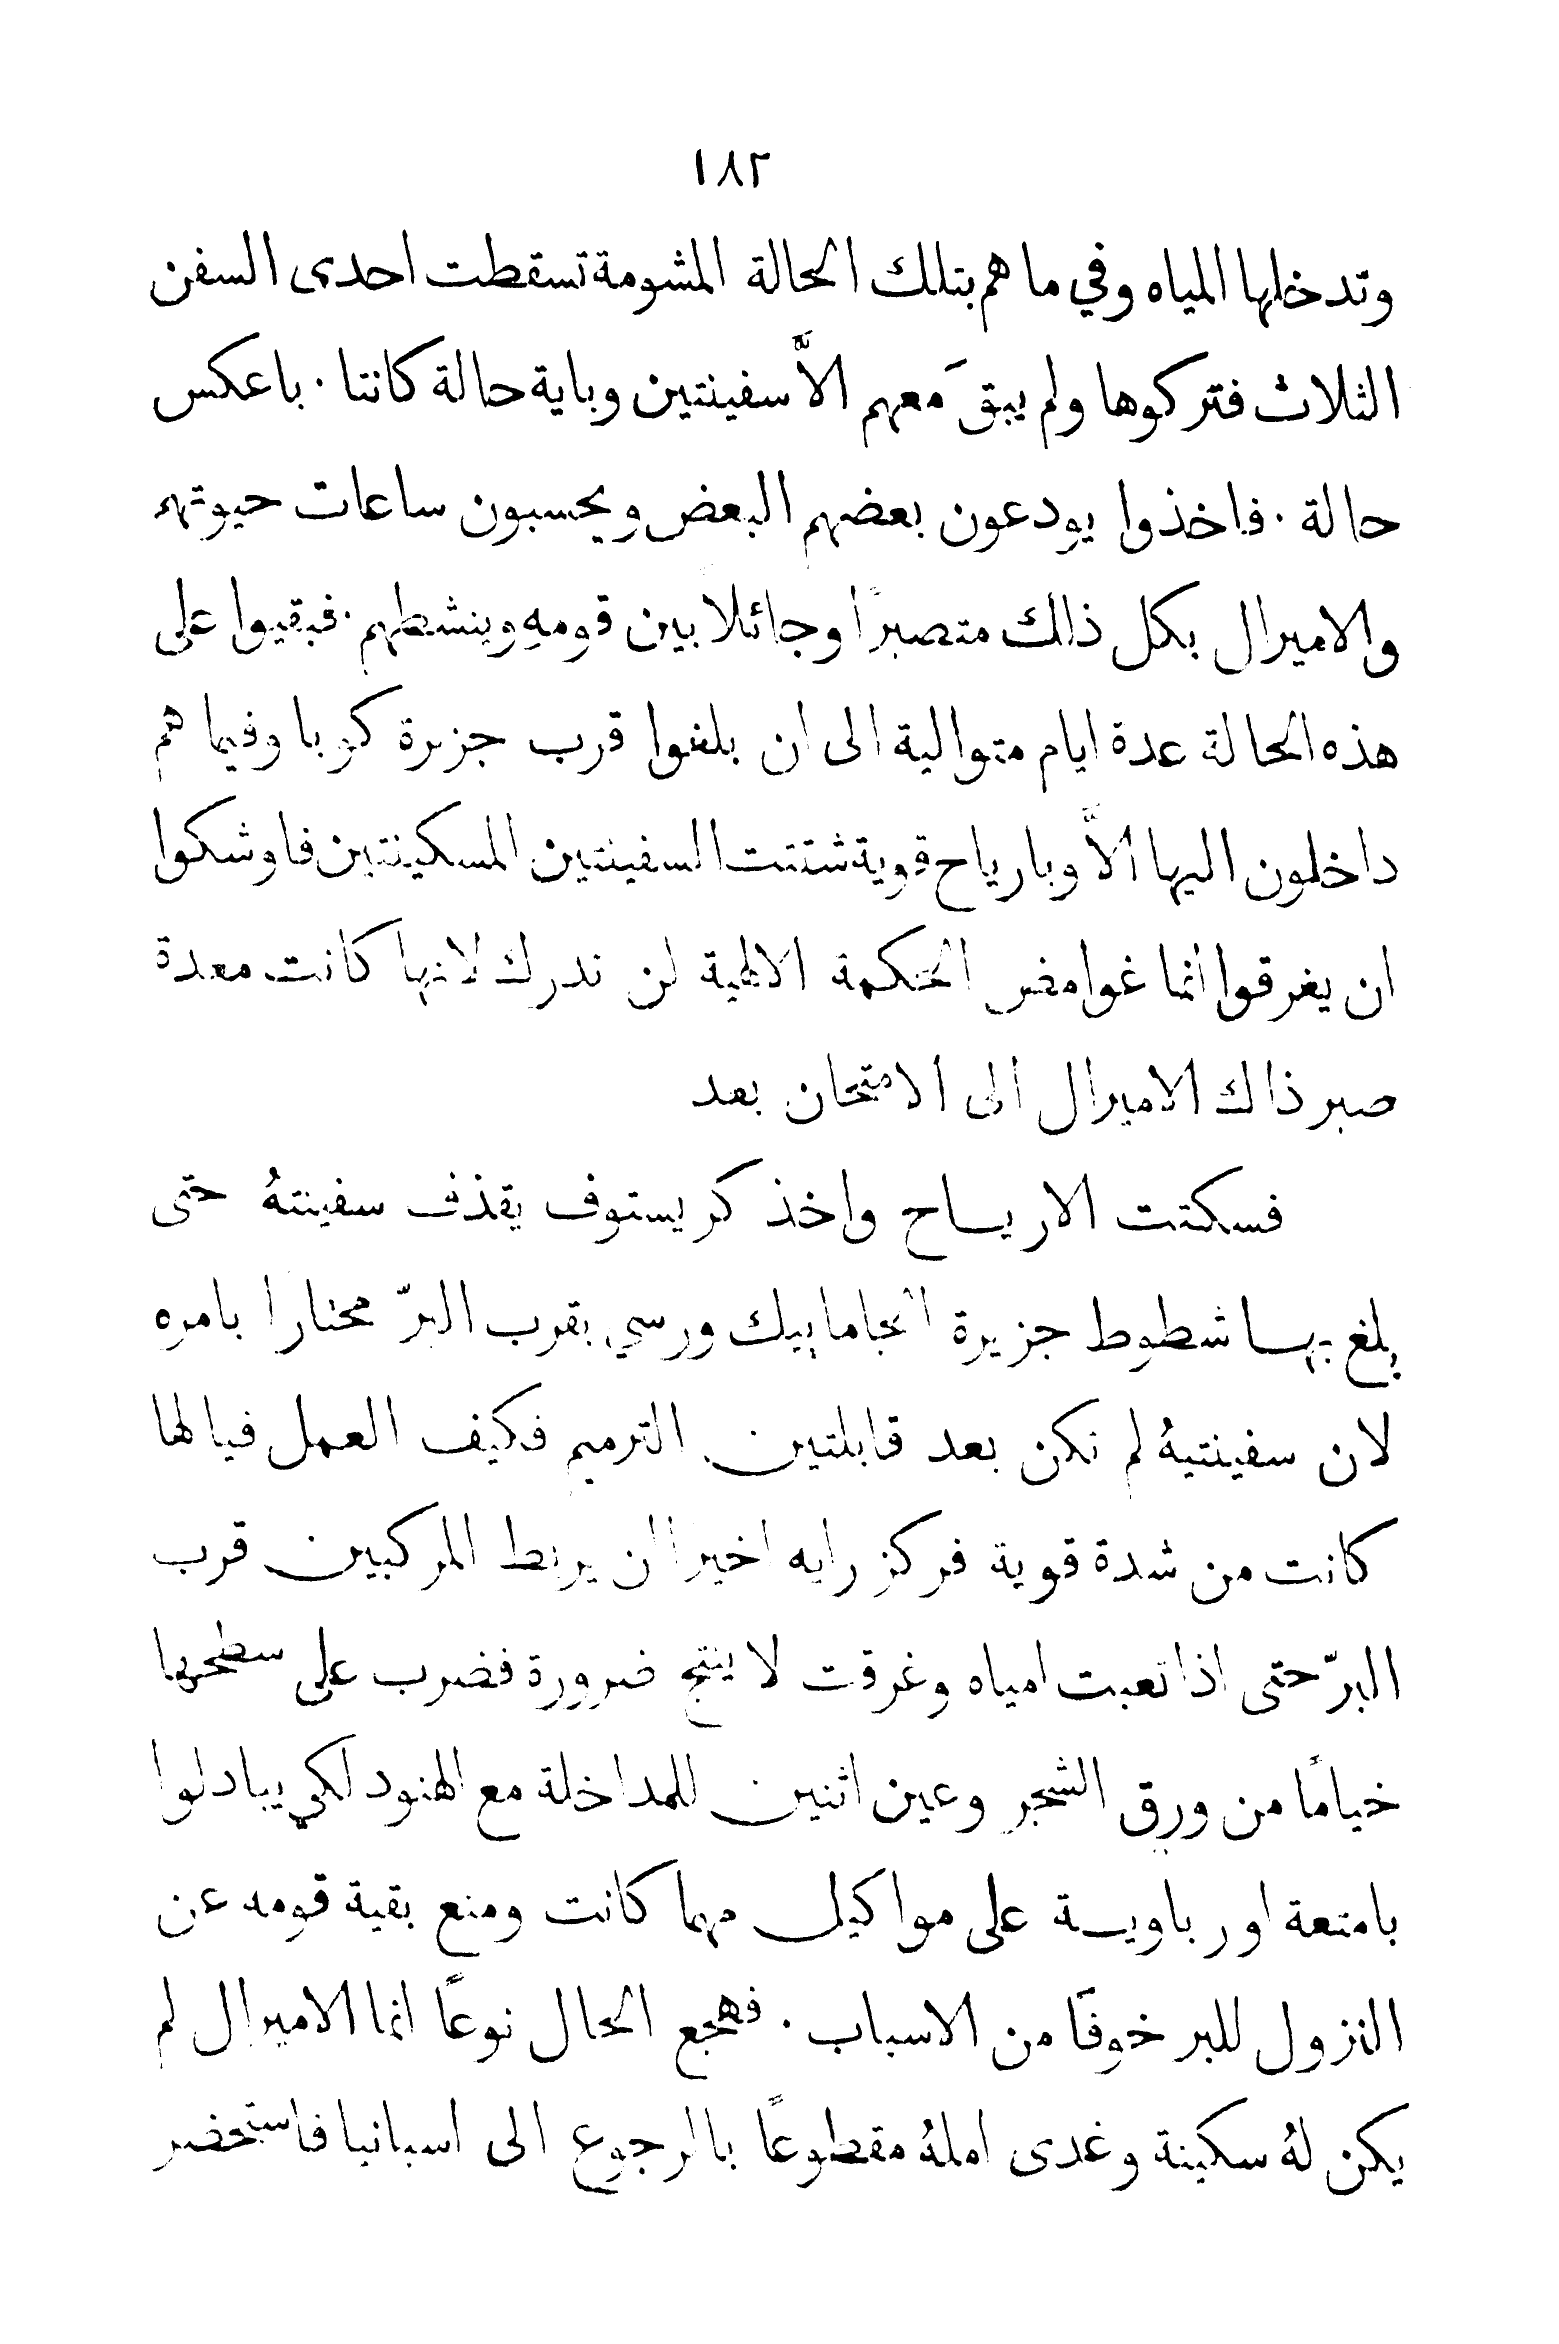 ١٨٢
وتدخلها المياه وفي ما هم بتلك الحالة المشومة تسقطت احدى السفن
الثلاث فتركوها ولم يبقَ معهم الاَّ سفينتين وباية حالة كانتا . باعكس
حالة . فاخذوا يودعون بعضهم البعض ويحسبون ساعات حيوتهم
والاميرال بكل ذلك متصبرًا وجائلاً بين قومهِ وينشطهم . فبقيوا على
هذه الحالة عدة ايام متوالية الى ان بلغوا قرب جزيرة كوبا وفيما هم
داخلون اليها الاَّ وبارياح قوية شتتت السفينتين المسكينتين فاوشكوا
ان يغرقوا انما غوامض الحكمة الالهية لن تدرك لانها كانت معدة
صبر ذاك الاميرال الى الامتحان بعد
فسكتت الارياح واخذ كريستوف يقذف سفينتهُ حتى
بلغ بها شطوط جزيرة الجاماييك ورسي بقرب البرّ مختارا بامره
لان سفينتيهُ لم تكن بعد قابلتين الترميم فكيف العمل فيالها
كانت من شدة قوية فركز رايه اخيرا ان يربط المركبين قرب
البرّ حتى اذا تعبت امياه وغرقت لا ينتج ضرورة فضرب على سطحها
خيامًا من ورق الشجر وعين اثنين للمداخلة مع الهنود لكي يبادلوا
بامتعة اورباوية على مواكيل مهما كانت ومنع بقية قومه عن
النزول للبر خوفًا من الاسباب . فهجع الحال نوعًا انما الاميرال لم
يكن لهُ سكينة وغدى املهُ مقطوعًا بالرجوع الى اسبانيا فاستحضر